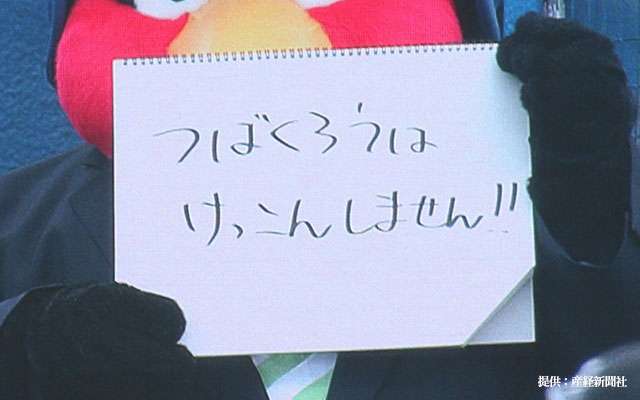 つばくろうは
けっこんしません!!
提供：産経新聞社